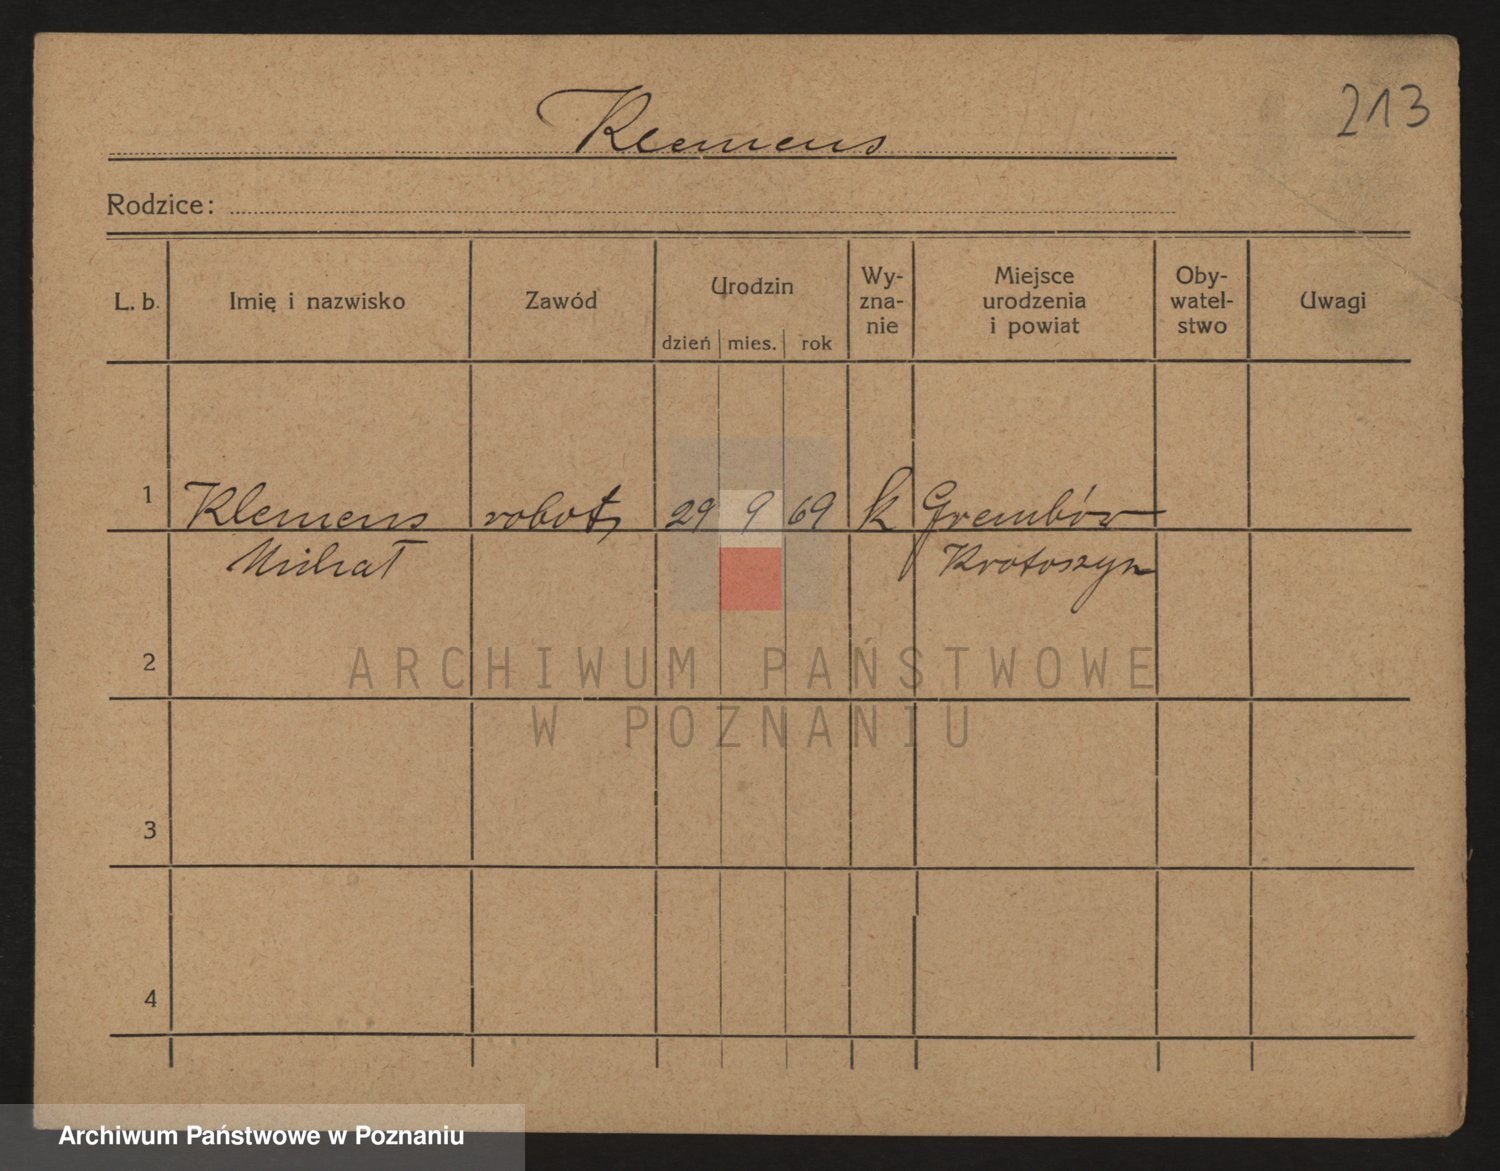 213
Klemens
Rodzice:
L. b. Imię i nazwisko Zawód Urodzin dzień mies. rok Wy-zna-nie Miejsce urodzenia i powiat Oby-watel-stwo Uwagi
1 Klemens robotn 29 9 69 k Grembów
Michał Krotoszyn
2
ARCHIWUM PAŃSTWOWE
W POZNANIU
3
4
Archiwum Państwowe w Poznaniu